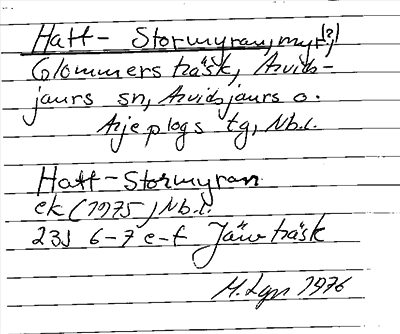 Hatt-Stormyran, myr(?)
Glommersträsk, Arvids-
jaurs sn, Arvidsjaurs o.
Arjeplogs tg, Nb.l.
Hatt-Stormyran
ek (1975) Nb.l.
23J 6-7 e-f Järvträsk
M. Lgn 1976